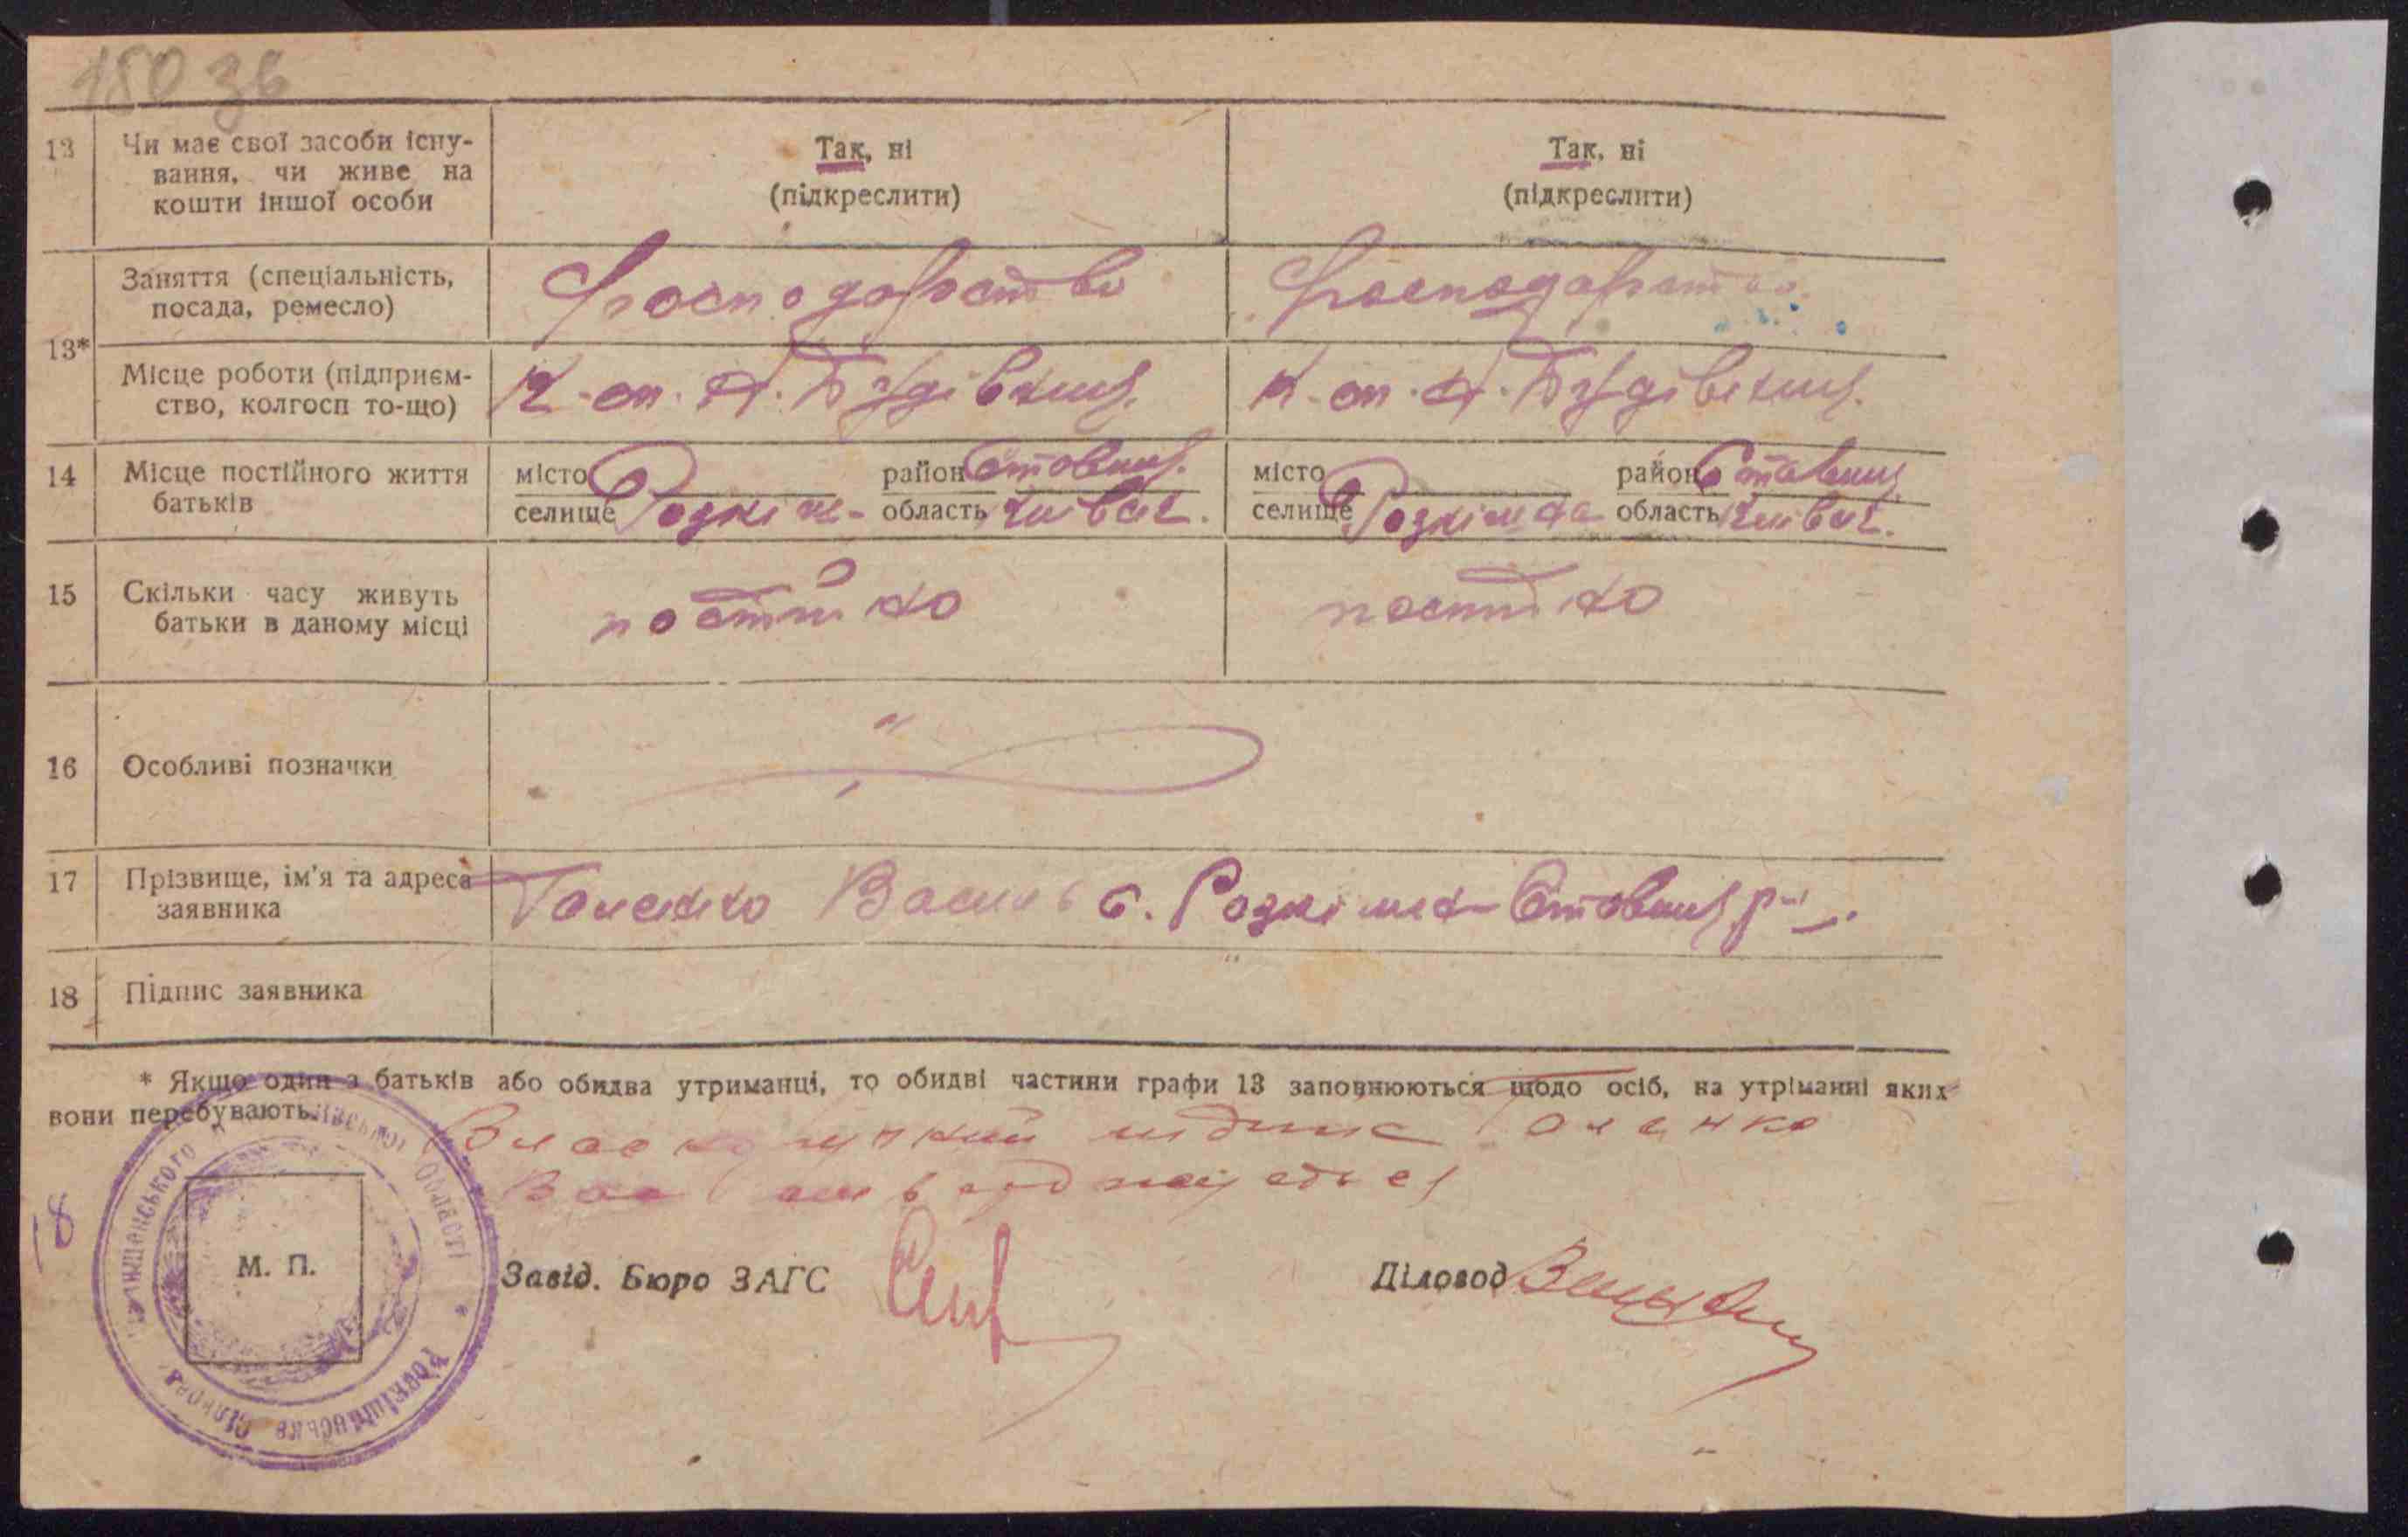 180 зв
13 Чи має свої засоби існу-
вання, чи живе на
кошти іншої особи
Так, ні
(підкреслити)
Так, ні
(підкреслити)
13*
Заняття (спеціальність,
посада, ремесло)
Господарство
Господарство
Місце роботи (підприєм-
ство, колгосп то-що)
К-сп. Будівниц.
К-сп. Будівниц.
14 Місце постійного життя
батьків
місто район Ставищ.
селище Розкішна область Київськ.
місто район Ставищ.
селище Розкішна область Київськ.
15 Скільки часу живуть
батьки в даному місці
постійно
постійно
16 Особливі позначки
17 Прізвище, ім'я та адреса
заявника
Василь с. Розкішна Ставищ р-н.
18 Підпис заявника
* Якщо один з батьків або обидва утриманці, то обидві частини графи 13 заповнюються щодо осіб, на утріманні яких
вони перебувають.
Власноручний підпис
18
М. П.
Завід. Бюро ЗАГС
Діловод
області
Розкішнянська сільрада